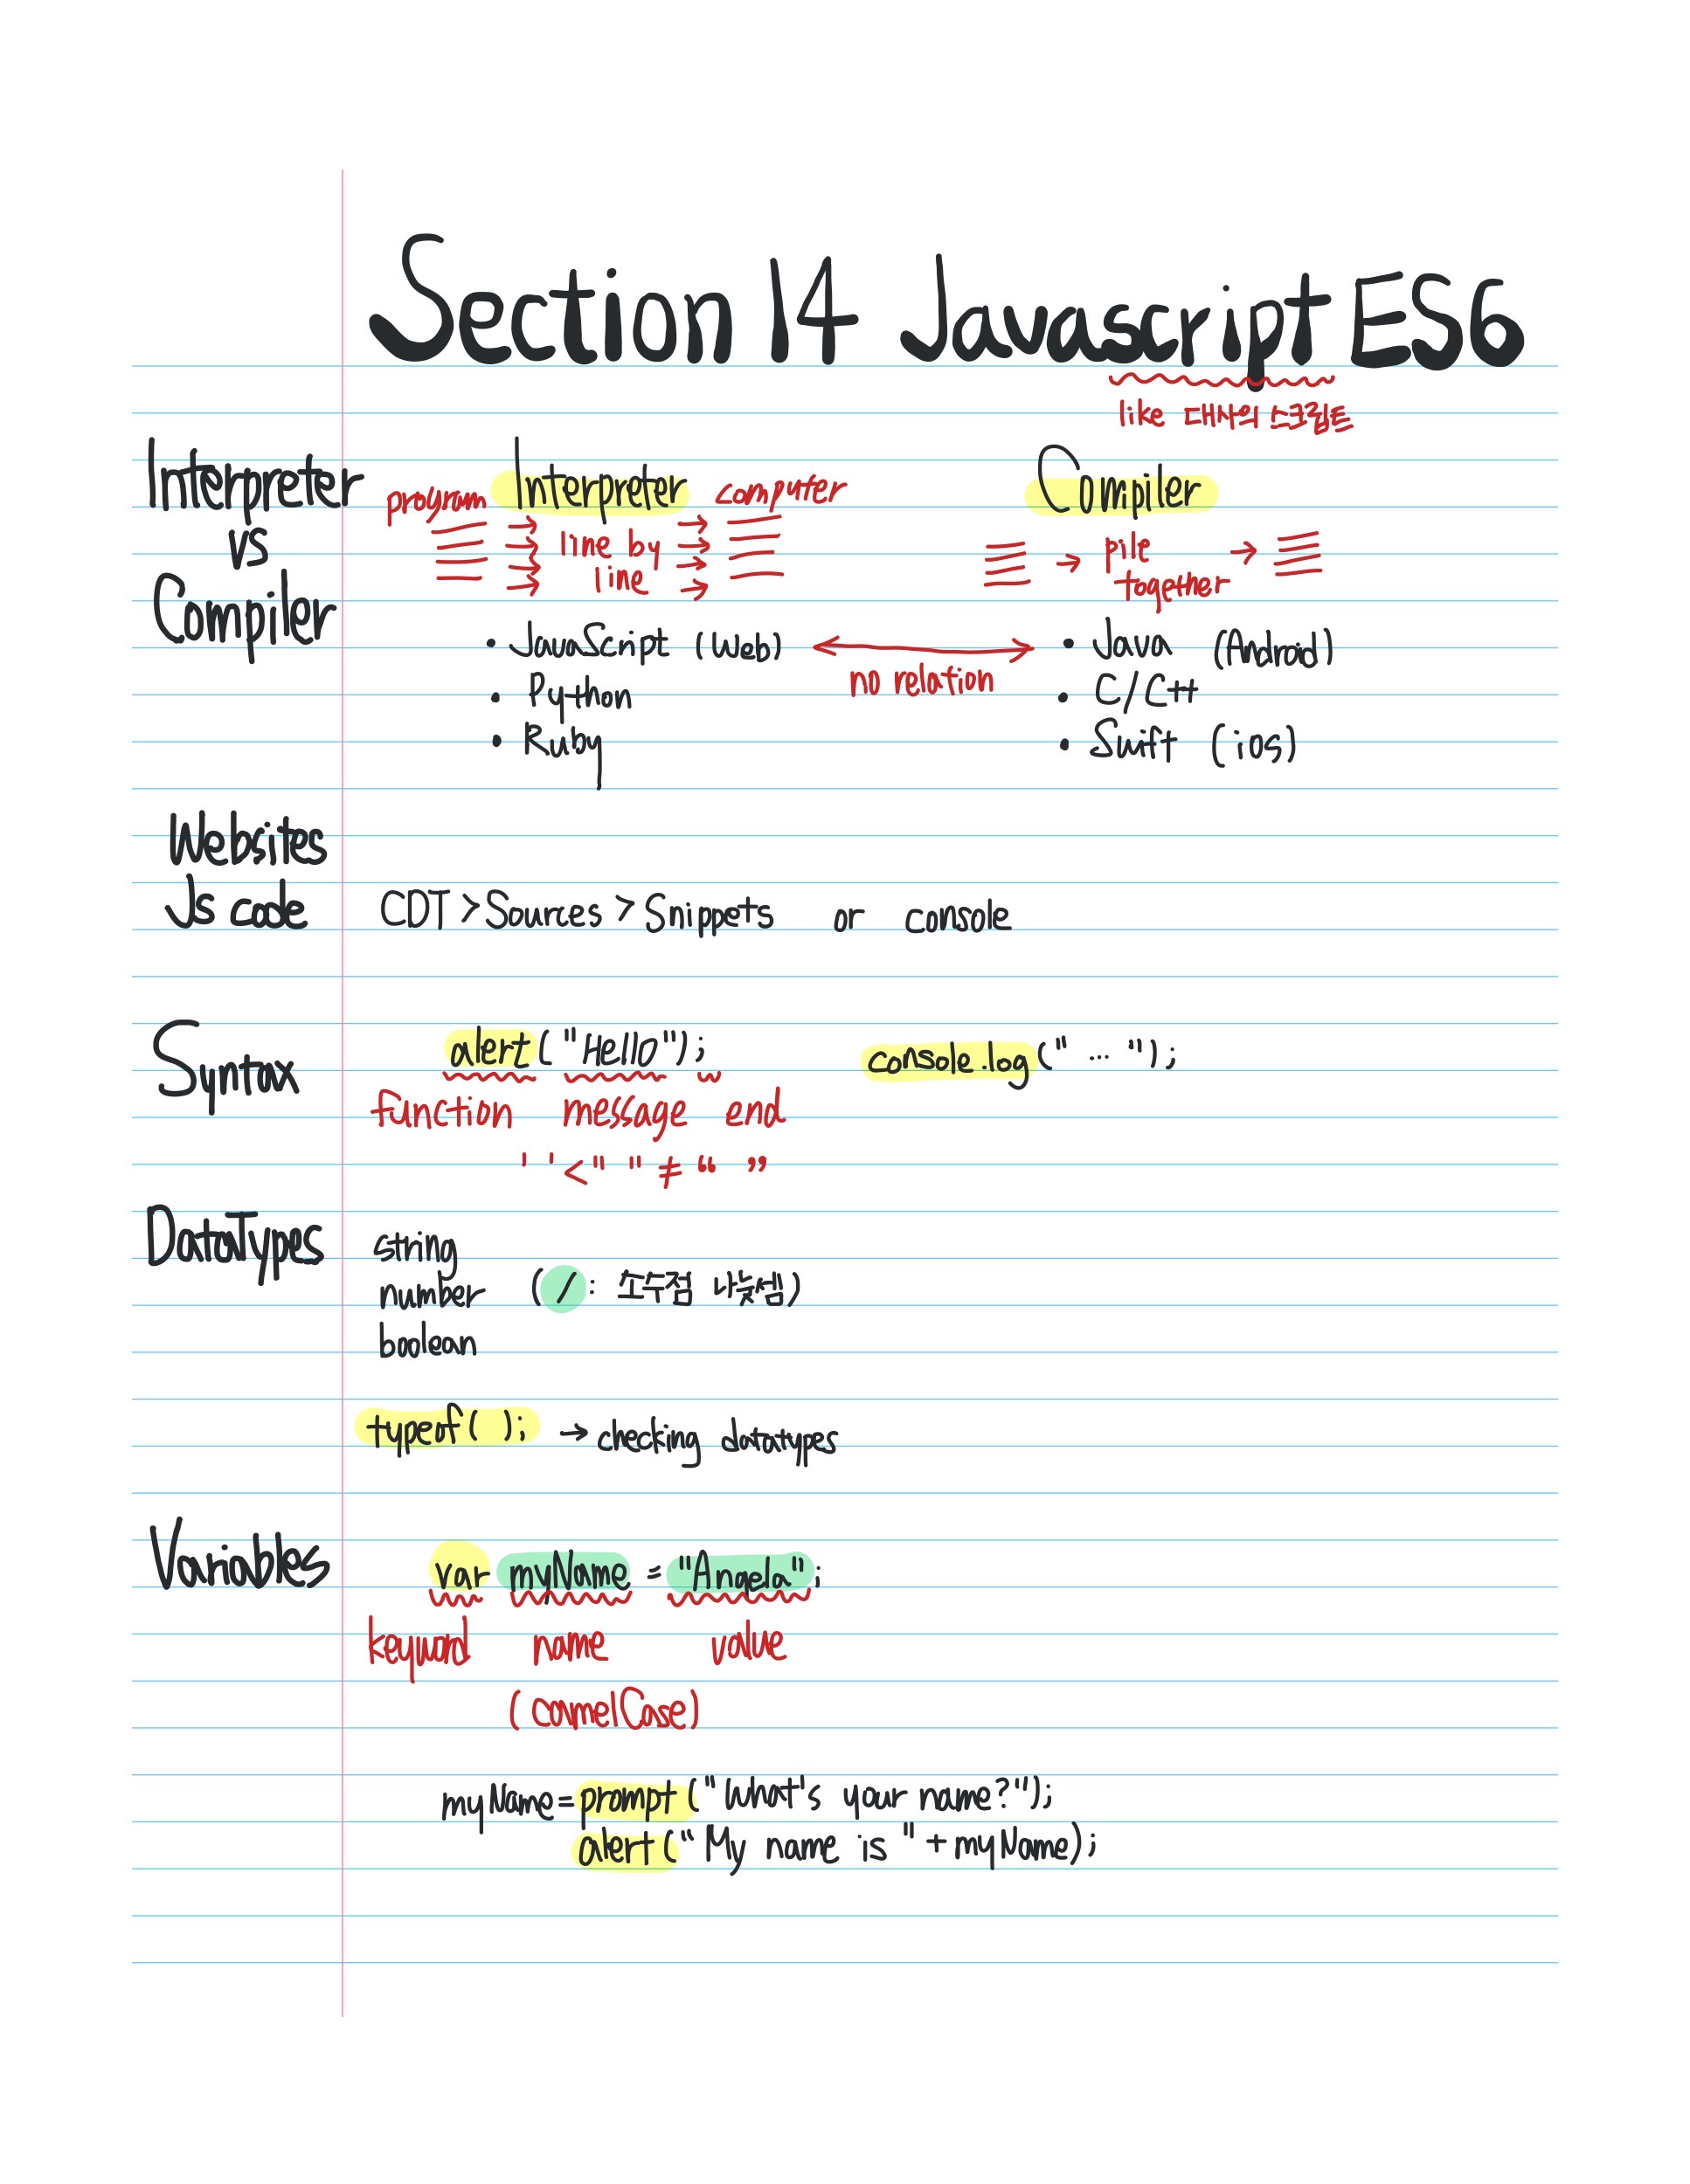 Section 14 Javascript ES6
like 대사의 스크립트
Interpreter
vs
Compiler
program Interpreter computer
line by
line
Compiler
pile
together
• JavaScript (Web)
• Python
• Ruby
no relation
• Java (Android)
• C/C++
• Swift (ios)
Websites
Js code
CDT > Sources > Snippets or console
Syntax
alert("Hello"); console.log("...");
function message end
' ' < " " ≠ “ ”
DataTypes
string
number (/: 소수점 나눗셈)
boolean
typeof( ); → checking datatypes
Variables
var myName = "Angela";
keyword name value
(camelCase)
myName = prompt("What's your name?");
alert("My name is " + myName);